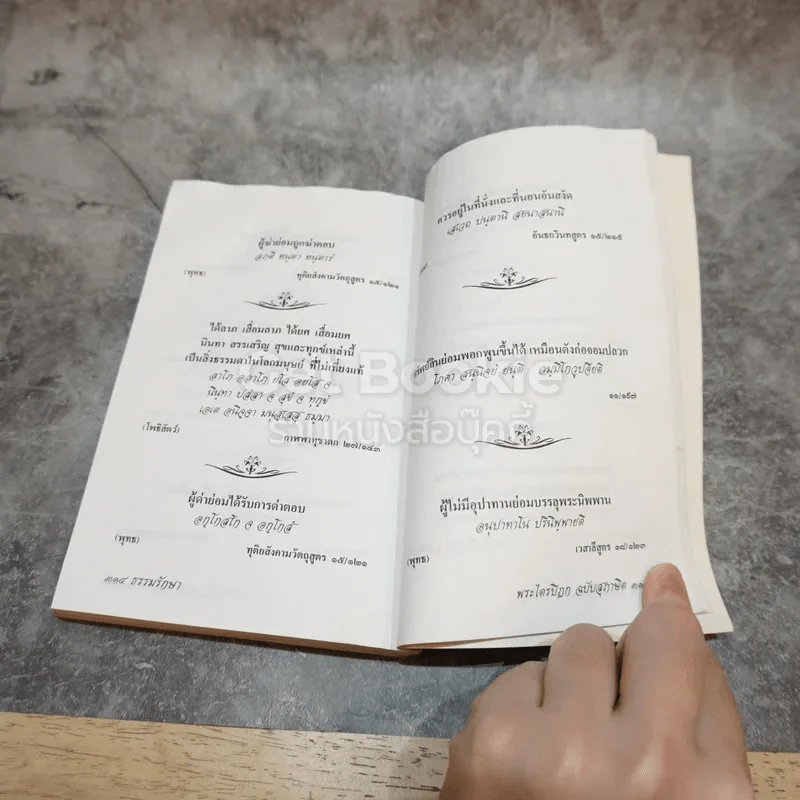 ผู้ฆ่าย่อมถูกฆ่าตอบ
ลภติ หนฺตา หนฺตารํ
(พุทธ)
ทุติยสังคามวัตถุสูตร ๑๕/๑๒๑
ได้ลาภ เสื่อมลาภ ได้ยศ เสื่อมยศ
นินทา สรรเสริญ สุขและทุกข์เหล่านี้
เป็นสิ่งธรรมดาในโลกมนุษย์ ที่ไม่เที่ยงแท้
ลาโภ อลาโภ ยโส อยโส จ
นินฺทา ปสํสา จ สุขํ จ ทุกฺขํ
เอเต อนิจฺจา มนุสฺเสสุ ธมฺมา
(โพธิสัตว์)
๒๗/๑๔๓
ผู้ด่าย่อมได้รับการด่าตอบ
อกฺโกสโก จ อกฺโกสํ
(พุทธ)
ทุติยสังคามวัตถุสูตร ๑๕/๑๒๑
๓๑๔ ธรรมรักษา
ควรอยู่ในที่นั่งและที่นอนอันสงัด
เสเวถ ปนฺตานิ สยนาสนานิ
อันธกวินทสูตร ๑๕/๒๑๕
ย่อมพอกพูนขึ้นได้ เหมือนดังก่อจอมปลวก
โภคา สนฺนิจยํ ยนฺติ วมฺมิโกวุปจียติ
๑๑/๑๙๗
ผู้ไม่มีอุปาทานย่อมบรรลุพระนิพพาน
อนุปาทาโน ปรินิพฺพายติ
(พุทธ)
เวสาลีสูตร ๑๘/๑๒๓
พระไตรปิฎก ฉบับสุภาษิต
Get Bookie
ร้านหนังสือบุ๊คกี้